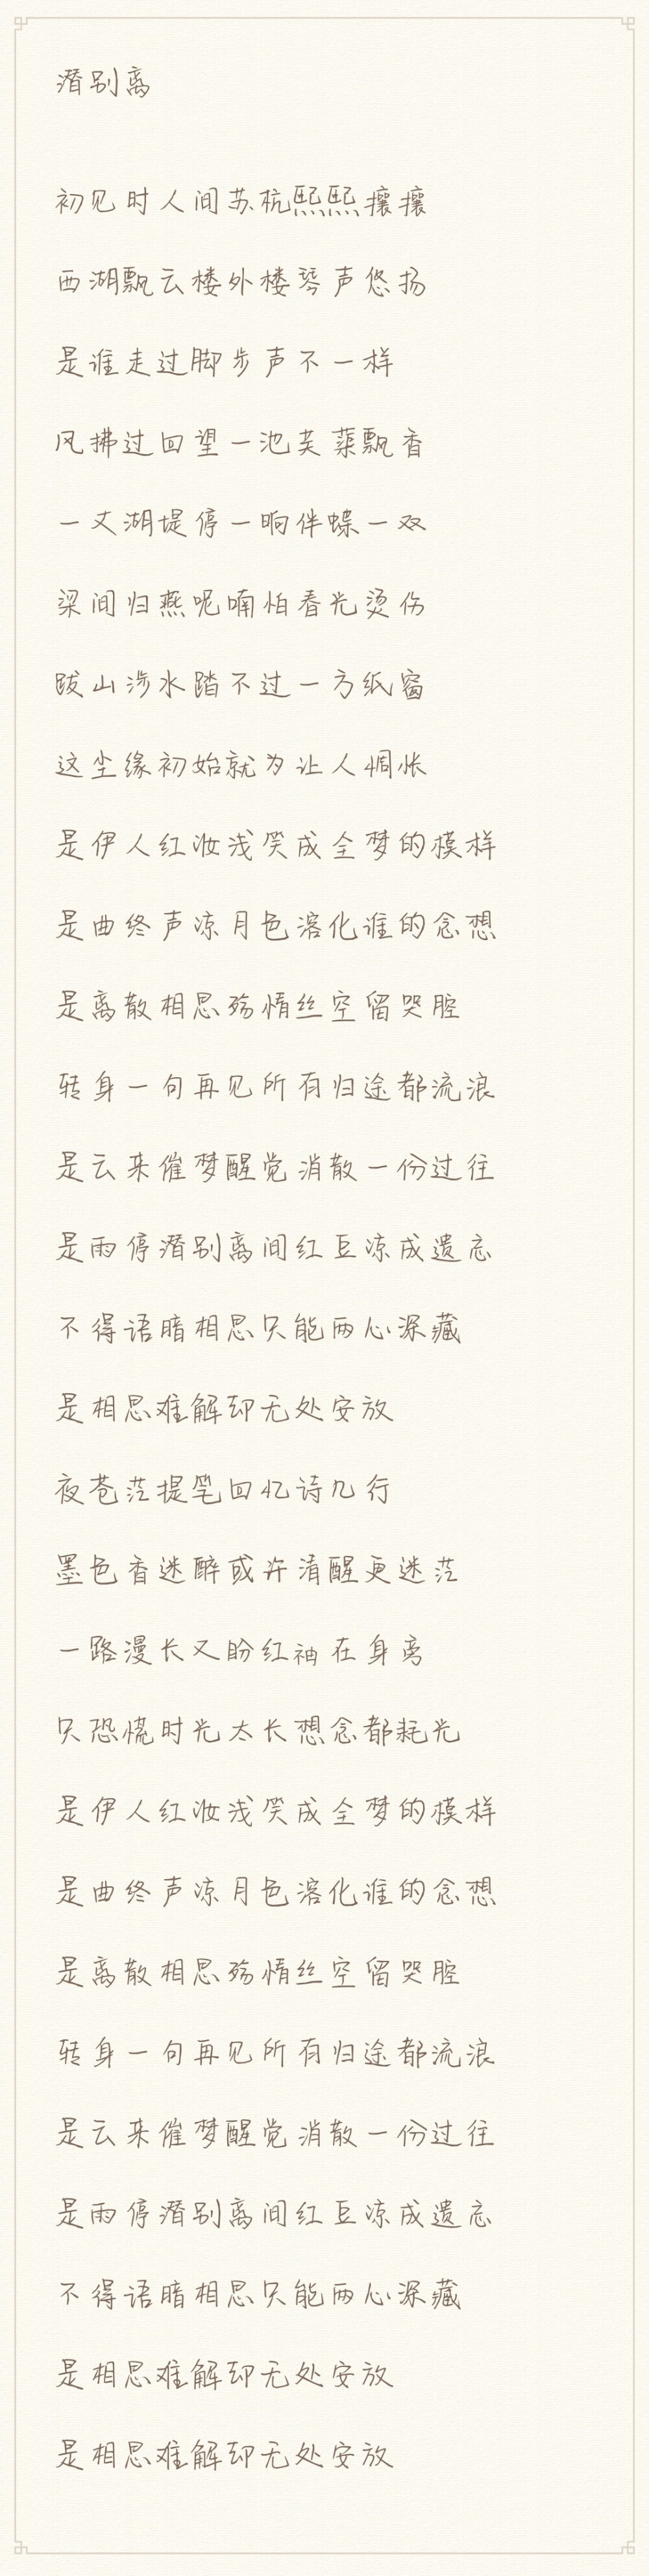 潜别离
初见时人间苏杭熙熙攘攘
西湖飘云楼外楼琴声悠扬
是谁走过脚步声不一样
风拂过回望一池芙蕖飘香
一丈湖堤停一晌伴蝶一双
梁间归燕呢喃怕春光烫伤
跋山涉水踏不过一方纸窗
这尘缘初始就为让人惆怅
是伊人红妆浅笑成全梦的模样
是曲终声凉月色溶化谁的念想
是离散相思殇情丝空留哭腔
转身一句再见所有归途都流浪
是云来催梦醒觉消散一份过往
是雨停潜别离间红豆凉成遗忘
不得语暗相思只能两心深藏
是相思难解却无处安放
夜苍茫提笔回忆诗几行
墨色香迷醉或许清醒更迷茫
一路漫长又盼红袖在身旁
只恐慌时光太长想念都耗光
是伊人红妆浅笑成全梦的模样
是曲终声凉月色溶化谁的念想
是离散相思殇情丝空留哭腔
转身一句再见所有归途都流浪
是云来催梦醒觉消散一份过往
是雨停潜别离间红豆凉成遗忘
不得语暗相思只能两心深藏
是相思难解却无处安放
是相思难解却无处安放